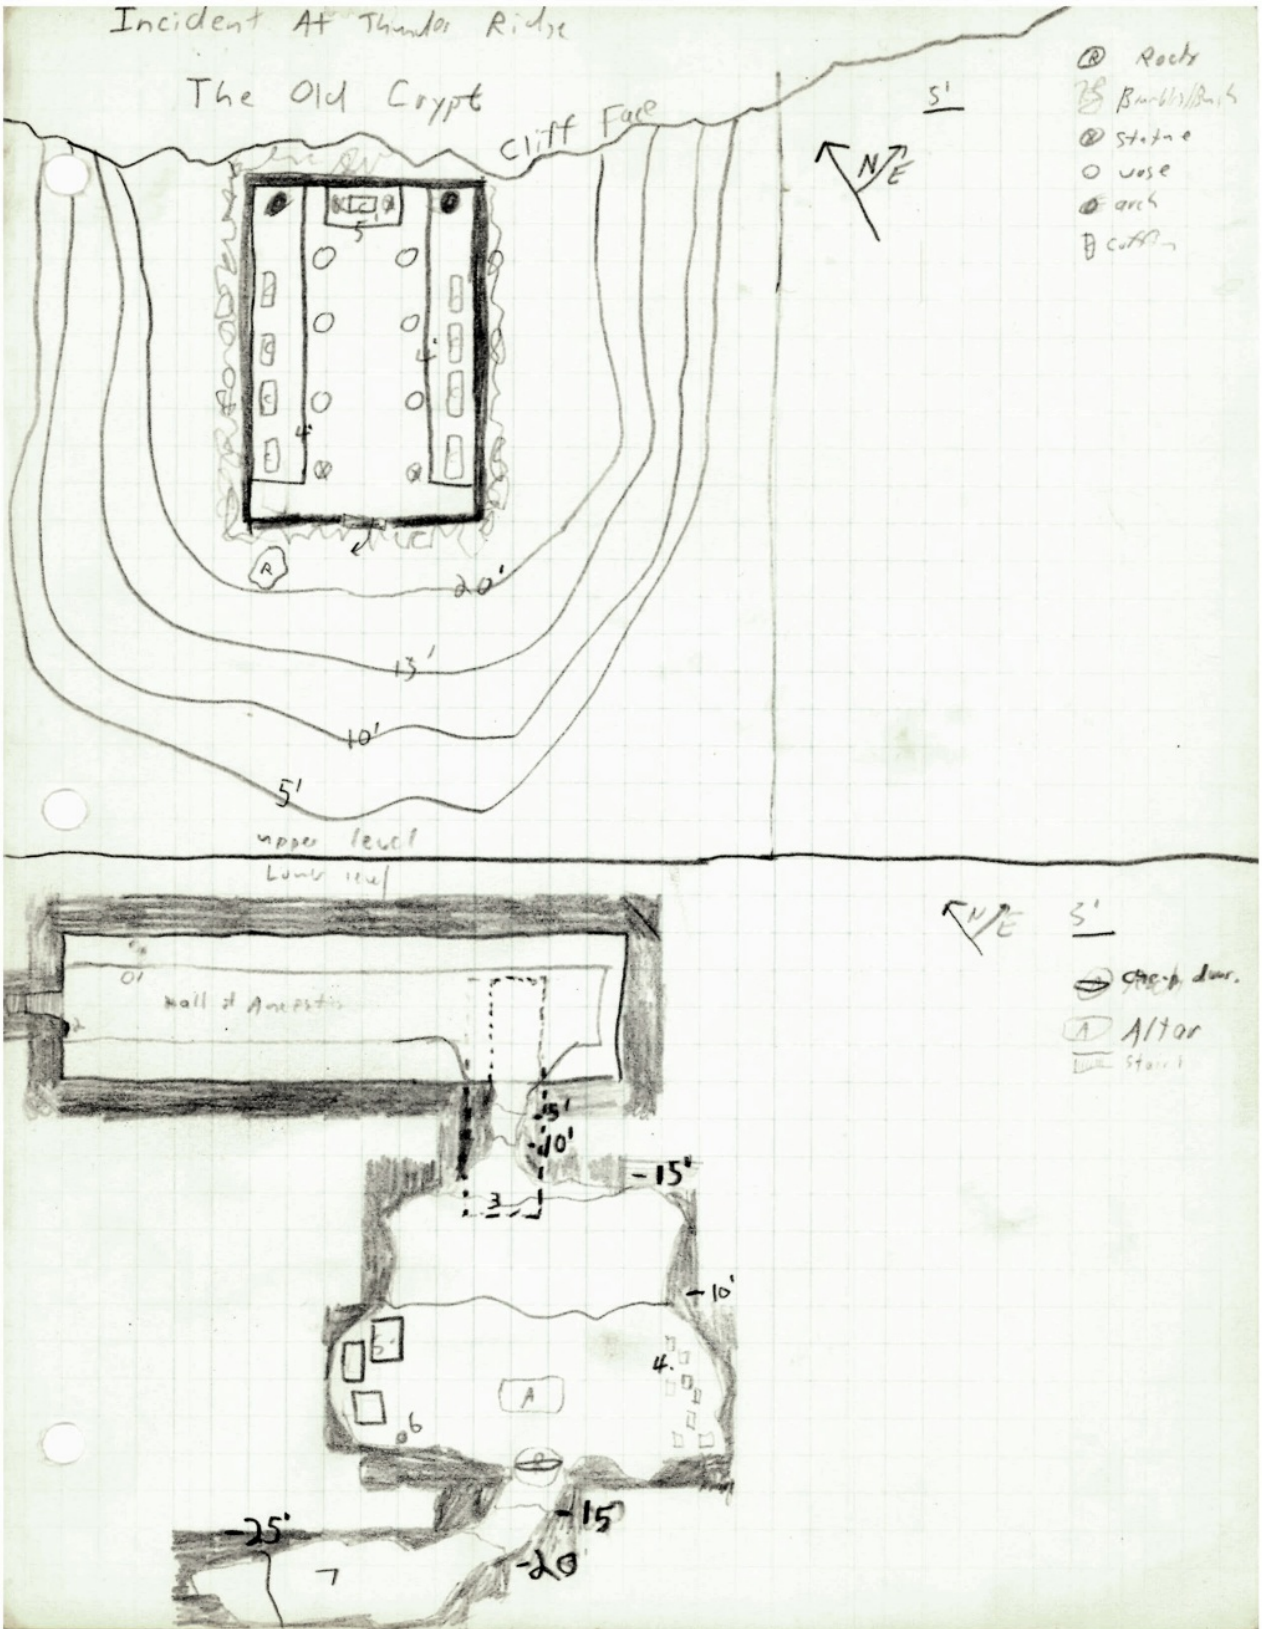 Incident At Thunder Ridge
The Old Crypt
Cliff Face
5'
N/E
R Rock
Statue
vase
arch
coffin
5'
4'
4'
R
20'
15'
10'
5'
upper level
Lower level
N/E
5'
door.
A Altar
Stairs
01
Hall of Ancestors
2
-5'
-10'
-15'
3
-10'
5
4.
A
6
-15
-25'
-20
7